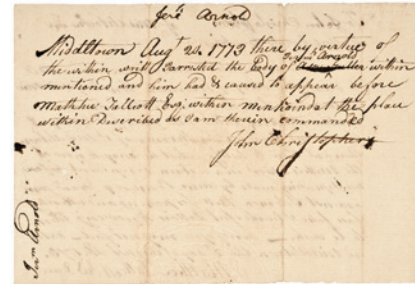 Jere Arnold
Middltown Augt 24 1773 there by virtue of
the within writ I arrested the Body of Jerem Arnold within
mentioned and him had & caused to appear before
Mathew Talcott Esqr within mentiond at the place
within Described as I am therein commanded
John Christophers
Jerm Arnold